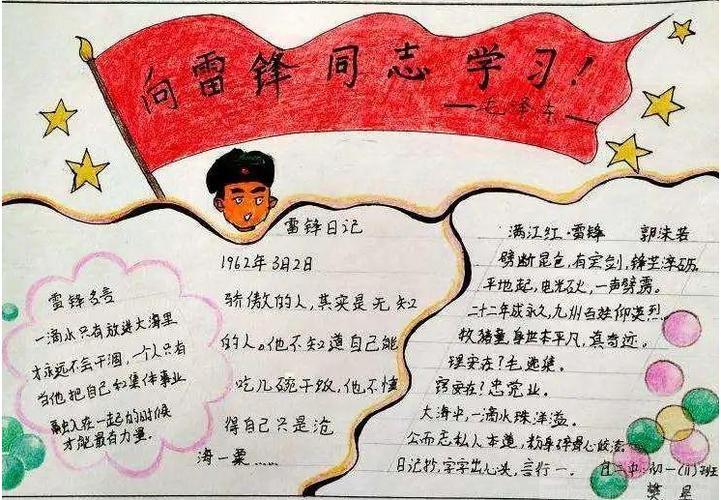 向雷锋同志学习!
——毛泽东——
雷锋日记
1962年3月2日
骄傲的人,其实是无知
的人。他不知道自己能
吃几碗干饭,他不懂
得自己只是沧
海一粟……
雷锋名言
一滴水只有放进大海里
才永远不会干涸,一个人只有
当他把自己和集体事业
融入在一起的时候
才能最有力量。
满江红·雷锋 郭沫若
劈断昆仑,有宝剑,锋芒淬砺.
平地起,电光石火,一声劈雳。
二十年成永久,九州百姓仰英烈.
牧猪童,身世本平凡,真奇迹。
理安在?毛选集。
窍安在?忠党业。
大海中,一滴水珠洋溢。
公而忘私人本道,粉身碎骨心皎洁.
日记抄,字字出心头,言行一.
二中·初一(11)班